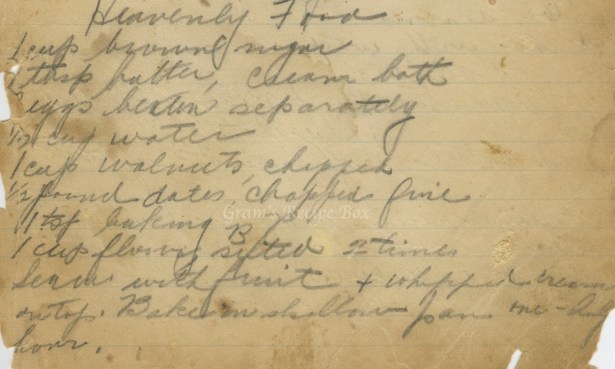 Heavenly Food
1 cup brown sugar
1 tbsp butter, cream both
eggs beaten separately
1/2 cup water
1 cup walnuts, chopped
1/2 pound dates, chopped fine
1 tsp baking
Gram's Recipe Box
B P
1 cup flour, sifted 2 times
Serve with fruit + whipped cream
on top. Bake in shallow pan one-half
hour.